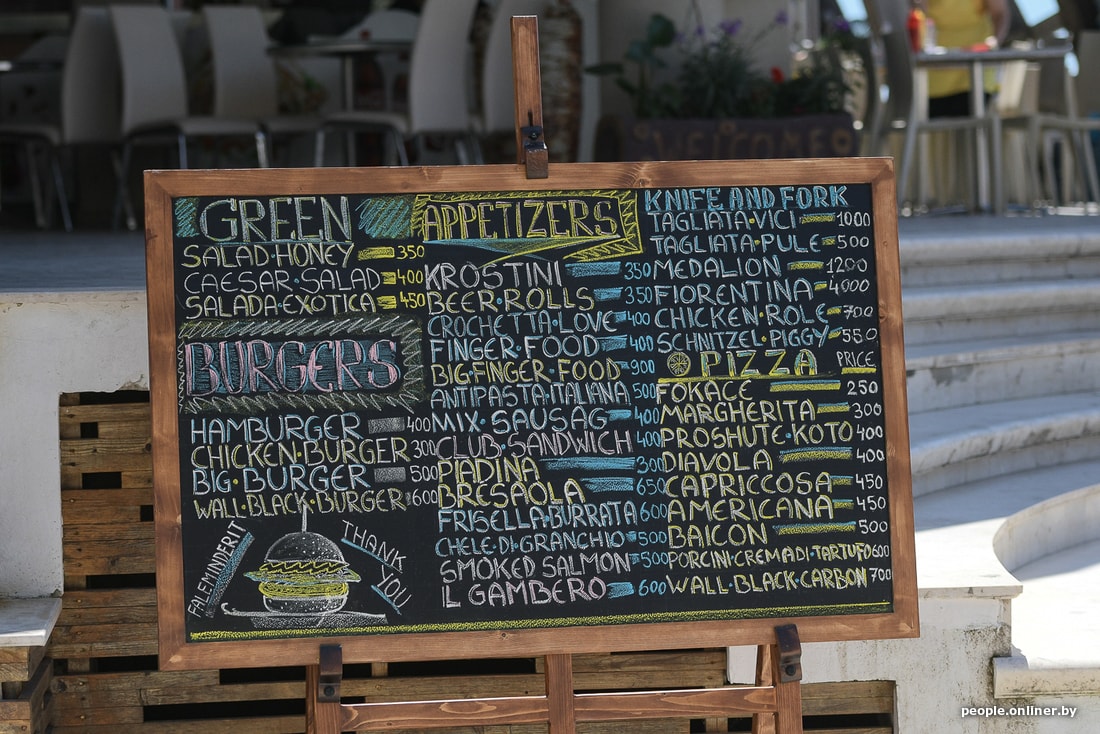 WELCOME
GREEN
SALAD·HONEY 350
CAESAR·SALAD 400
SALADA·EXOTICA 450
BURGERS
HAMBURGER 400
CHICKEN·BURGER 300
BIG·BURGER 500
WALL·BLACK·BURGER 600
FALEMINDERIT
THANK
YOU
APPETIZERS
KROSTINI 350
BEER·ROLLS 350
CROCHETTA·LOVE 400
FINGER·FOOD 400
BIG·FINGER·FOOD 900
ANTIPASTA·ITALIANA 500
MIX·SAUSAG 400
CLUB·SANDWICH 400
PIADINA 300
BRESAOLA 650
FRISELLA·BURRATA 600
CHELE·DI·GRANCHIO 500
SMOKED SALMON 500
IL GAMBERO 600
KNIFE AND FORK
TAGLIATA·VICI 1000
TAGLIATA·PULE 500
MEDALION 1200
FIORENTINA 4000
CHICKEN·ROLE 700
SCHNITZEL·PIGGY 550
PIZZA PRICE
FOKACE 250
MARGHERITA 300
PROSHUTE·KOTO 400
DIAVOLA 400
CAPRICCOSA 450
AMERICANA 450
BAICON 500
PORCINI·CREMADI·TARTUFO 600
WALL·BLACK·CARBON 700
people.onliner.by